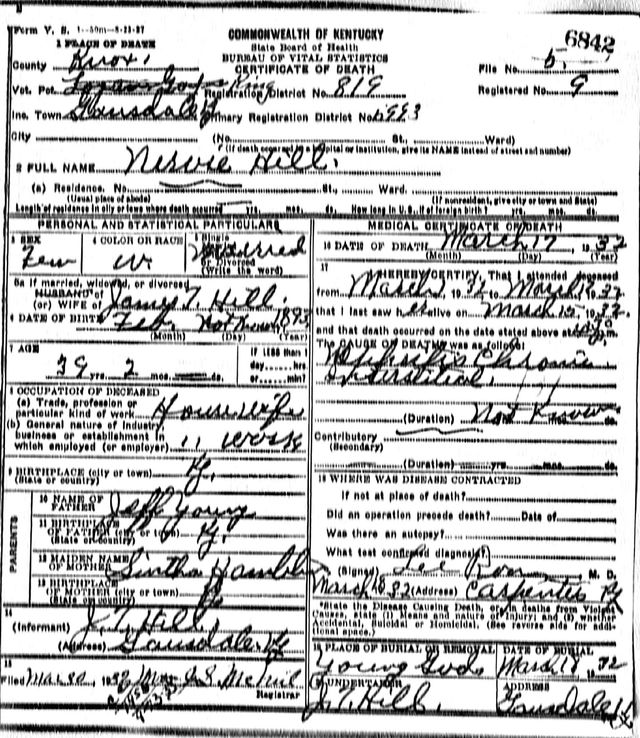 Form V. S. 1-50m-8-23-27
COMMONWEALTH OF KENTUCKY
State Board of Health
BUREAU OF VITAL STATISTICS
CERTIFICATE OF DEATH
6842
1 PLACE OF DEATH
County Knox
File No. 5
Vot. Pct. Registration District No. 819
Registered No. 9
Inc. Town Primary Registration District No.
City (No. St., Ward)
(If death occurred in a hospital or institution, give its NAME instead of street and number)
2 FULL NAME Nervie Hill.
(a) Residence. No. St., Ward.
(Usual place of abode) (If nonresident, give city or town and State)
Length of residence in city or town where death occurred yrs. mos. ds. How long in U. S., if of foreign birth? yrs. mos. ds.
PERSONAL AND STATISTICAL PARTICULARS
3 SEX
Fem
4 COLOR OR RACE
W
5 Single
Married
Divorced
(Write the word)
5a If married, widowed, or divorced
HUSBAND of
(or) WIFE of James T. Hill.
6 DATE OF BIRTH Feb Not Known 1893
(Month) (Day) (Year)
7 AGE
39 yrs. 2 mos. ds.
If LESS than 1
day......hrs.
or......min?
8 OCCUPATION OF DECEASED
(a) Trade, profession or
particular kind of work House wife
(b) General nature of industry
business or establishment in
which employed (or employer) " work
9 BIRTHPLACE (city or town)
(State or country) Ky.
PARENTS
10 NAME OF
FATHER Jeff Young
11 BIRTHPLACE
OF FATHER (city or town)
(State or country) Ky.
12 MAIDEN NAME
OF MOTHER Sintha Hamblin
13 BIRTHPLACE
OF MOTHER (city or town)
(State or country) Ky
14
(Informant) J. T. Hill.
(Address) Ky
15
Filed Mar 20, 1932 Mrs J. S. McNeil
Registrar
MEDICAL CERTIFICATE OF DEATH
16 DATE OF DEATH March 17 1932
(Month) (Day) (Year)
17
I HEREBY CERTIFY, That I attended deceased
from March 1932 to March 1932
that I last saw her alive on March 15, 1932
and that death occurred on the date stated above at m.
The CAUSE OF DEATH was as follows:
Nephritis Chronic
interstitial.
(Duration) Not Known
Contributory
(Secondary)
(Duration) yrs. mos. ds.
18 WHERE WAS DISEASE CONTRACTED
If not at place of death?
Did an operation precede death? Date of
Was there an autopsy?
What test confirmed diagnosis?
(Signed) Lee M. D.
March 1932 (Address) Carpenter Ky
*State the Disease Causing Death, or, in deaths from Violent
Causes state (1) Means and nature of Injury; and (2) whether
Accidental, Suicidal or Homicidal. (See reverse side for addi-
tional space.)
19 PLACE OF BURIAL OR REMOVAL
Young
DATE OF BURIAL
March 18 1932
20 UNDERTAKER
J. T. Hill.
ADDRESS